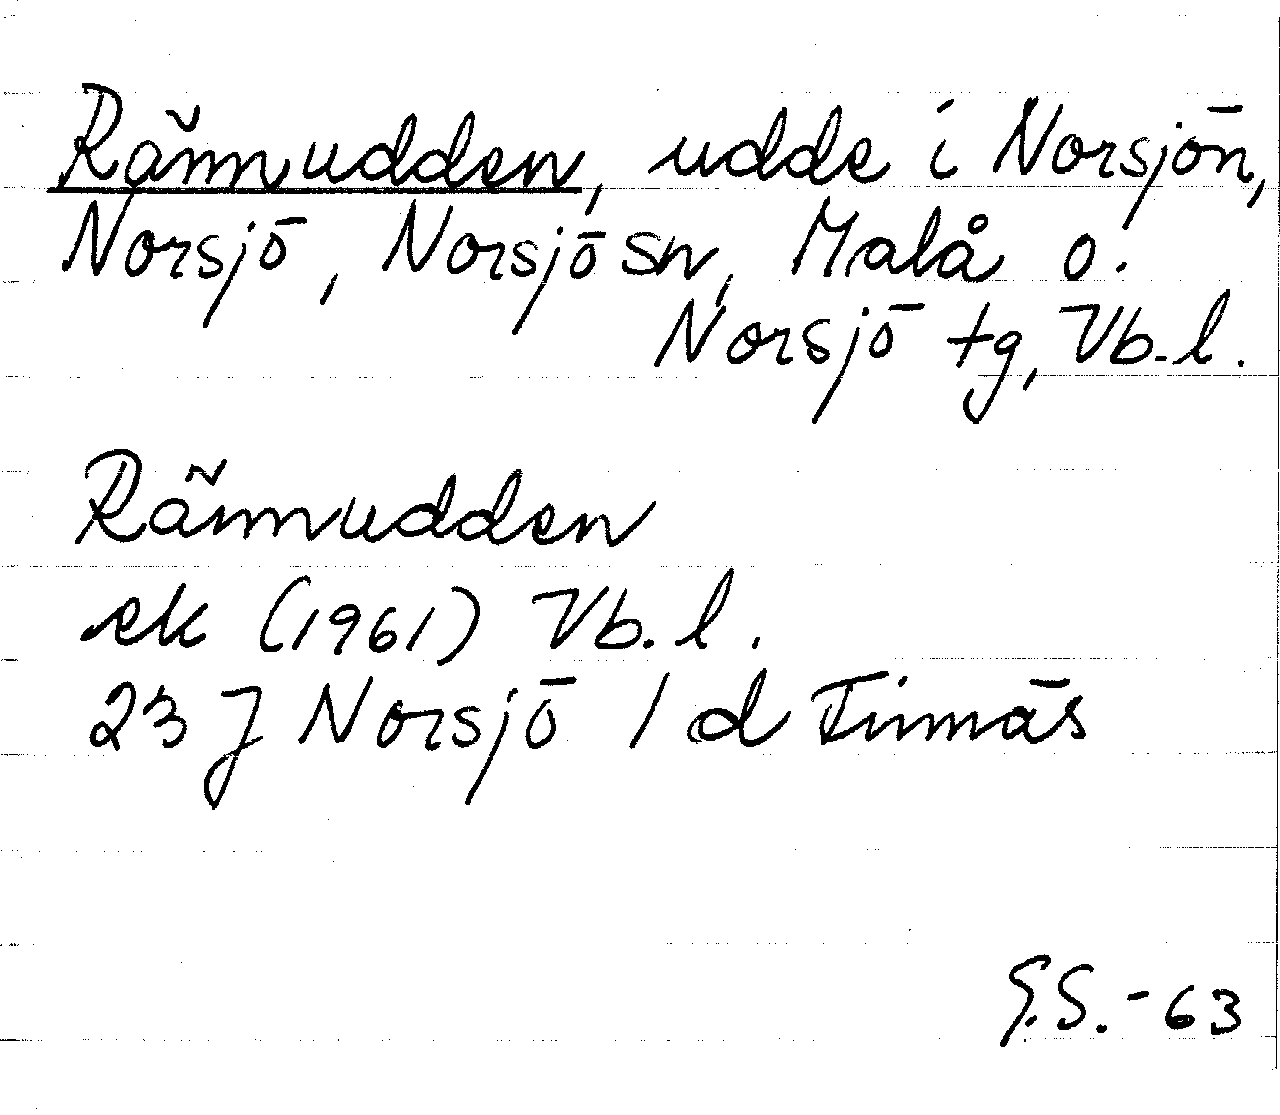 Rännudden, udde i Norsjön,
Norsjö, Norsjö sn, Malå o.
Norsjö tg, Vb. l.
Rännudden
ek (1961) Vb. l.
23 J Norsjö 1 d Finnäs
G.S. - 63